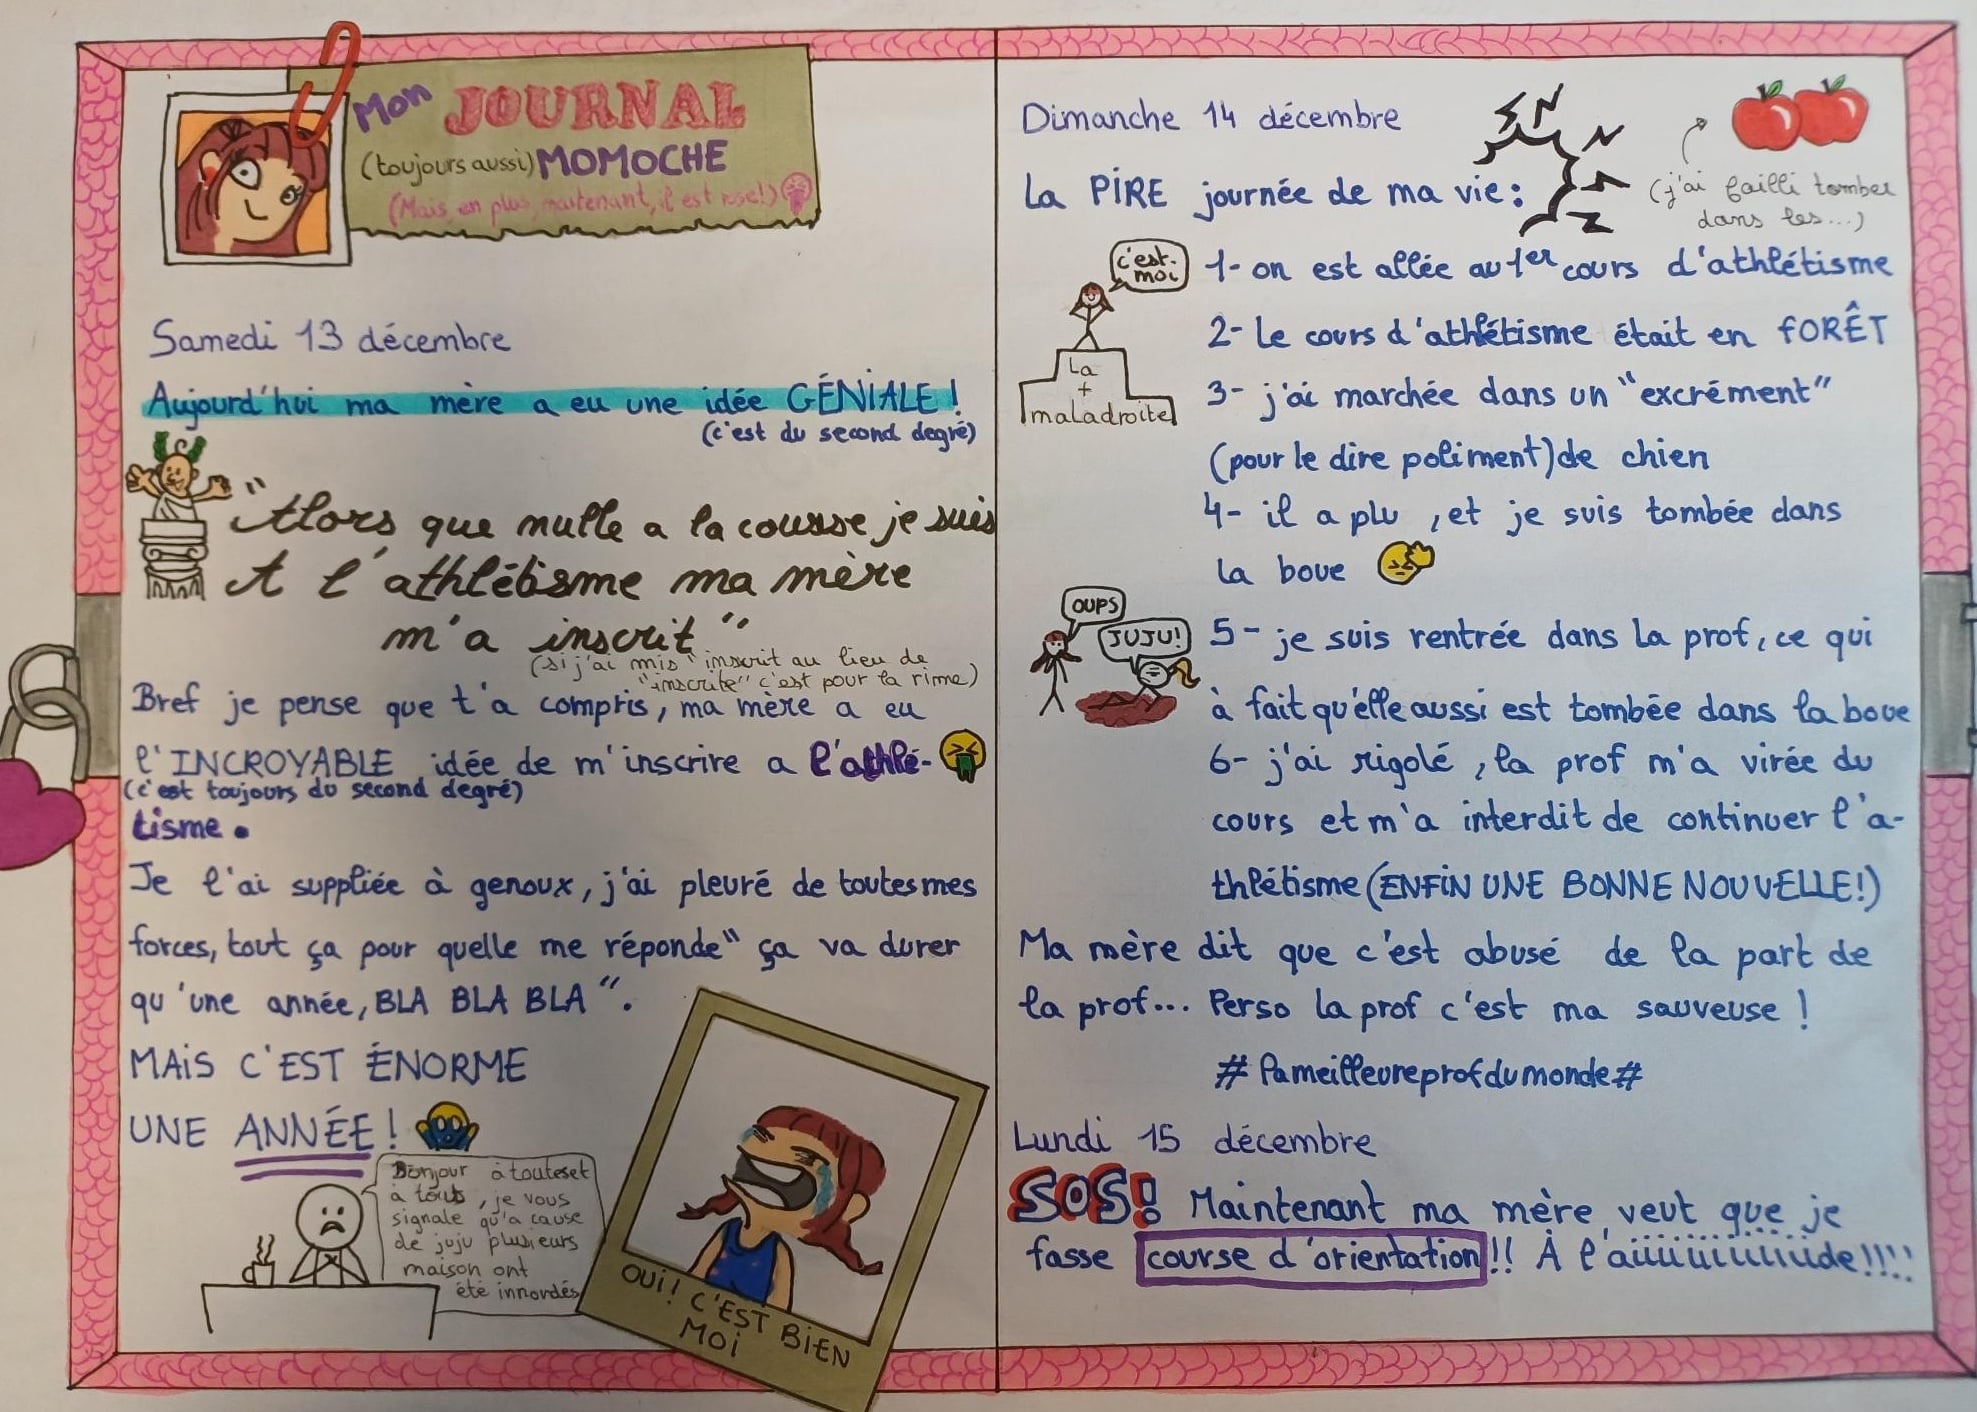 Mon JOURNAL
(toujours aussi) MOMOCHE
(Mais, en plus, maintenant, il est rose!)
Samedi 13 décembre
Aujourd'hui ma mère a eu une idée GÉNIALE !
(c'est du second degré)
"Alors que nulle a la course je suis
A l'athlétisme ma mère
m'a inscrit"
(si j'ai mis "inscrit au lieu de
"inscrite" c'est pour la rime)
Bref je pense que t'a compris, ma mère a eu
l'INCROYABLE idée de m'inscrire a l'athlé-
(c'est toujours du second degré)
tisme.
Je l'ai suppliée à genoux, j'ai pleuré de toutes mes
forces, tout ça pour quelle me réponde" ça va durer
qu'une année, BLA BLA BLA".
MAIS C'EST ÉNORME
UNE ANNÉE !
Bonjour à toutes et
à tous, je vous
signale qu'a cause
de juju plusieurs
maison ont
été innondés
OUI! C'EST BIEN
MOI
Dimanche 14 décembre
La PIRE journée de ma vie :
(j'ai failli tomber
dans les...)
c'est
moi
La
+
maladroite
1- on est allée au 1er cours d'athlétisme
2- Le cours d'athlétisme était en fORÊT
3- j'ai marchée dans un "excrément"
(pour le dire poliment) de chien
4- il a plu , et je suis tombée dans
la boue
OUPS
JUJU!
5- je suis rentrée dans la prof, ce qui
à fait qu'elle aussi est tombée dans la boue
6- j'ai rigolé , la prof m'a virée du
cours et m'a interdit de continuer l'a-
thlétisme (ENFIN UNE BONNE NOUVELLE!)
Ma mère dit que c'est abusé de la part de
la prof... Perso la prof c'est ma sauveuse !
# lameilleureprofdumonde#
Lundi 15 décembre
SOS! Maintenant ma mère veut que je
fasse course d'orientation !! À l'aiiiiiiiiiiiide!!!!